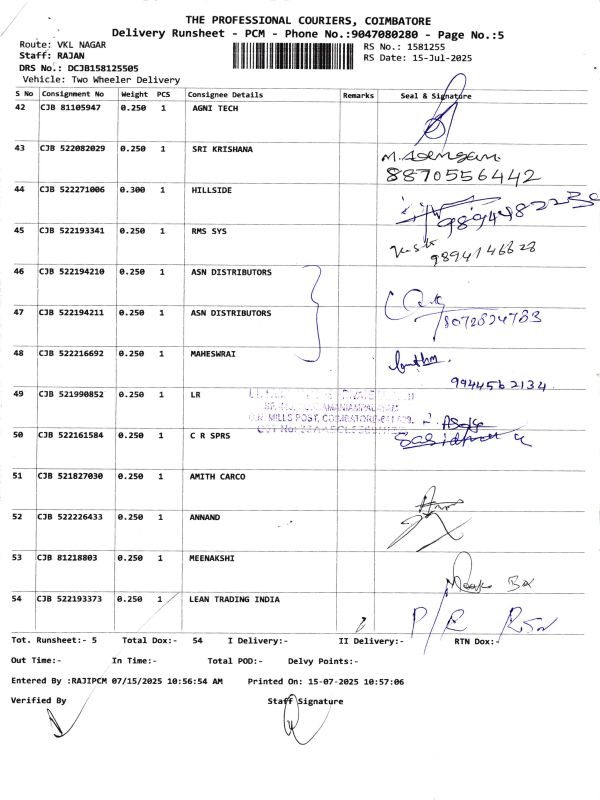 THE PROFESSIONAL COURIERS, COIMBATORE
Delivery Runsheet - PCM - Phone No.:9047080280 - Page No.:5
Route: VKL NAGAR
RS No.: 1581255
Staff: RAJAN
RS Date: 15-Jul-2025
DRS No.: DCJB158125505
Vehicle: Two Wheeler Delivery
S No Consignment No Weight PCS Consignee Details Remarks Seal & Signature
42 CJB 81105947 0.250 1 AGNI TECH
43 CJB 522082029 0.250 1 SRI KRISHANA
8870556442
44 CJB 522271006 0.300 1 HILLSIDE
45 CJB 522193341 0.250 1 RMS SYS
9894146628
46 CJB 522194210 0.250 1 ASN DISTRIBUTORS
47 CJB 522194211 0.250 1 ASN DISTRIBUTORS
8072824783
48 CJB 522216692 0.250 1 MAHESWRAI
9944562134
49 CJB 521990852 0.250 1 LR
MILLS POST, COIMBATORE-641
50 CJB 522161584 0.250 1 C R SPRS
51 CJB 521827030 0.250 1 AMITH CARCO
52 CJB 522226433 0.250 1 ANNAND
53 CJB 81218803 0.250 1 MEENAKSHI
54 CJB 522193373 0.250 1 LEAN TRADING INDIA
Tot. Runsheet:- 5 Total Dox:- 54 I Delivery:- II Delivery:- RTN Dox:-
Out Time:- In Time:- Total POD:- Delvy Points:-
Entered By :RAJIPCM 07/15/2025 10:56:54 AM Printed On: 15-07-2025 10:57:06
Verified By Staff Signature